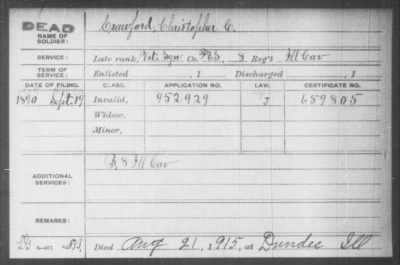 DEAD
NAME OF SOLDIER: Crawford, Christopher C.
SERVICE: Late rank, Vet. Sgt Co. F&S, 8 Reg't Ill Cav
TERM OF SERVICE: Enlisted , 1 Discharged , 1
DATE OF FILING. CLASS. APPLICATION NO. LAW. CERTIFICATE NO.
1890 Sept. 17 Invalid, 952.929 J 659805
Widow,
Minor,
ADDITIONAL SERVICES: B, 8 Ill Cav
REMARKS:
Died Aug 21, 1915, at Dundee Ill